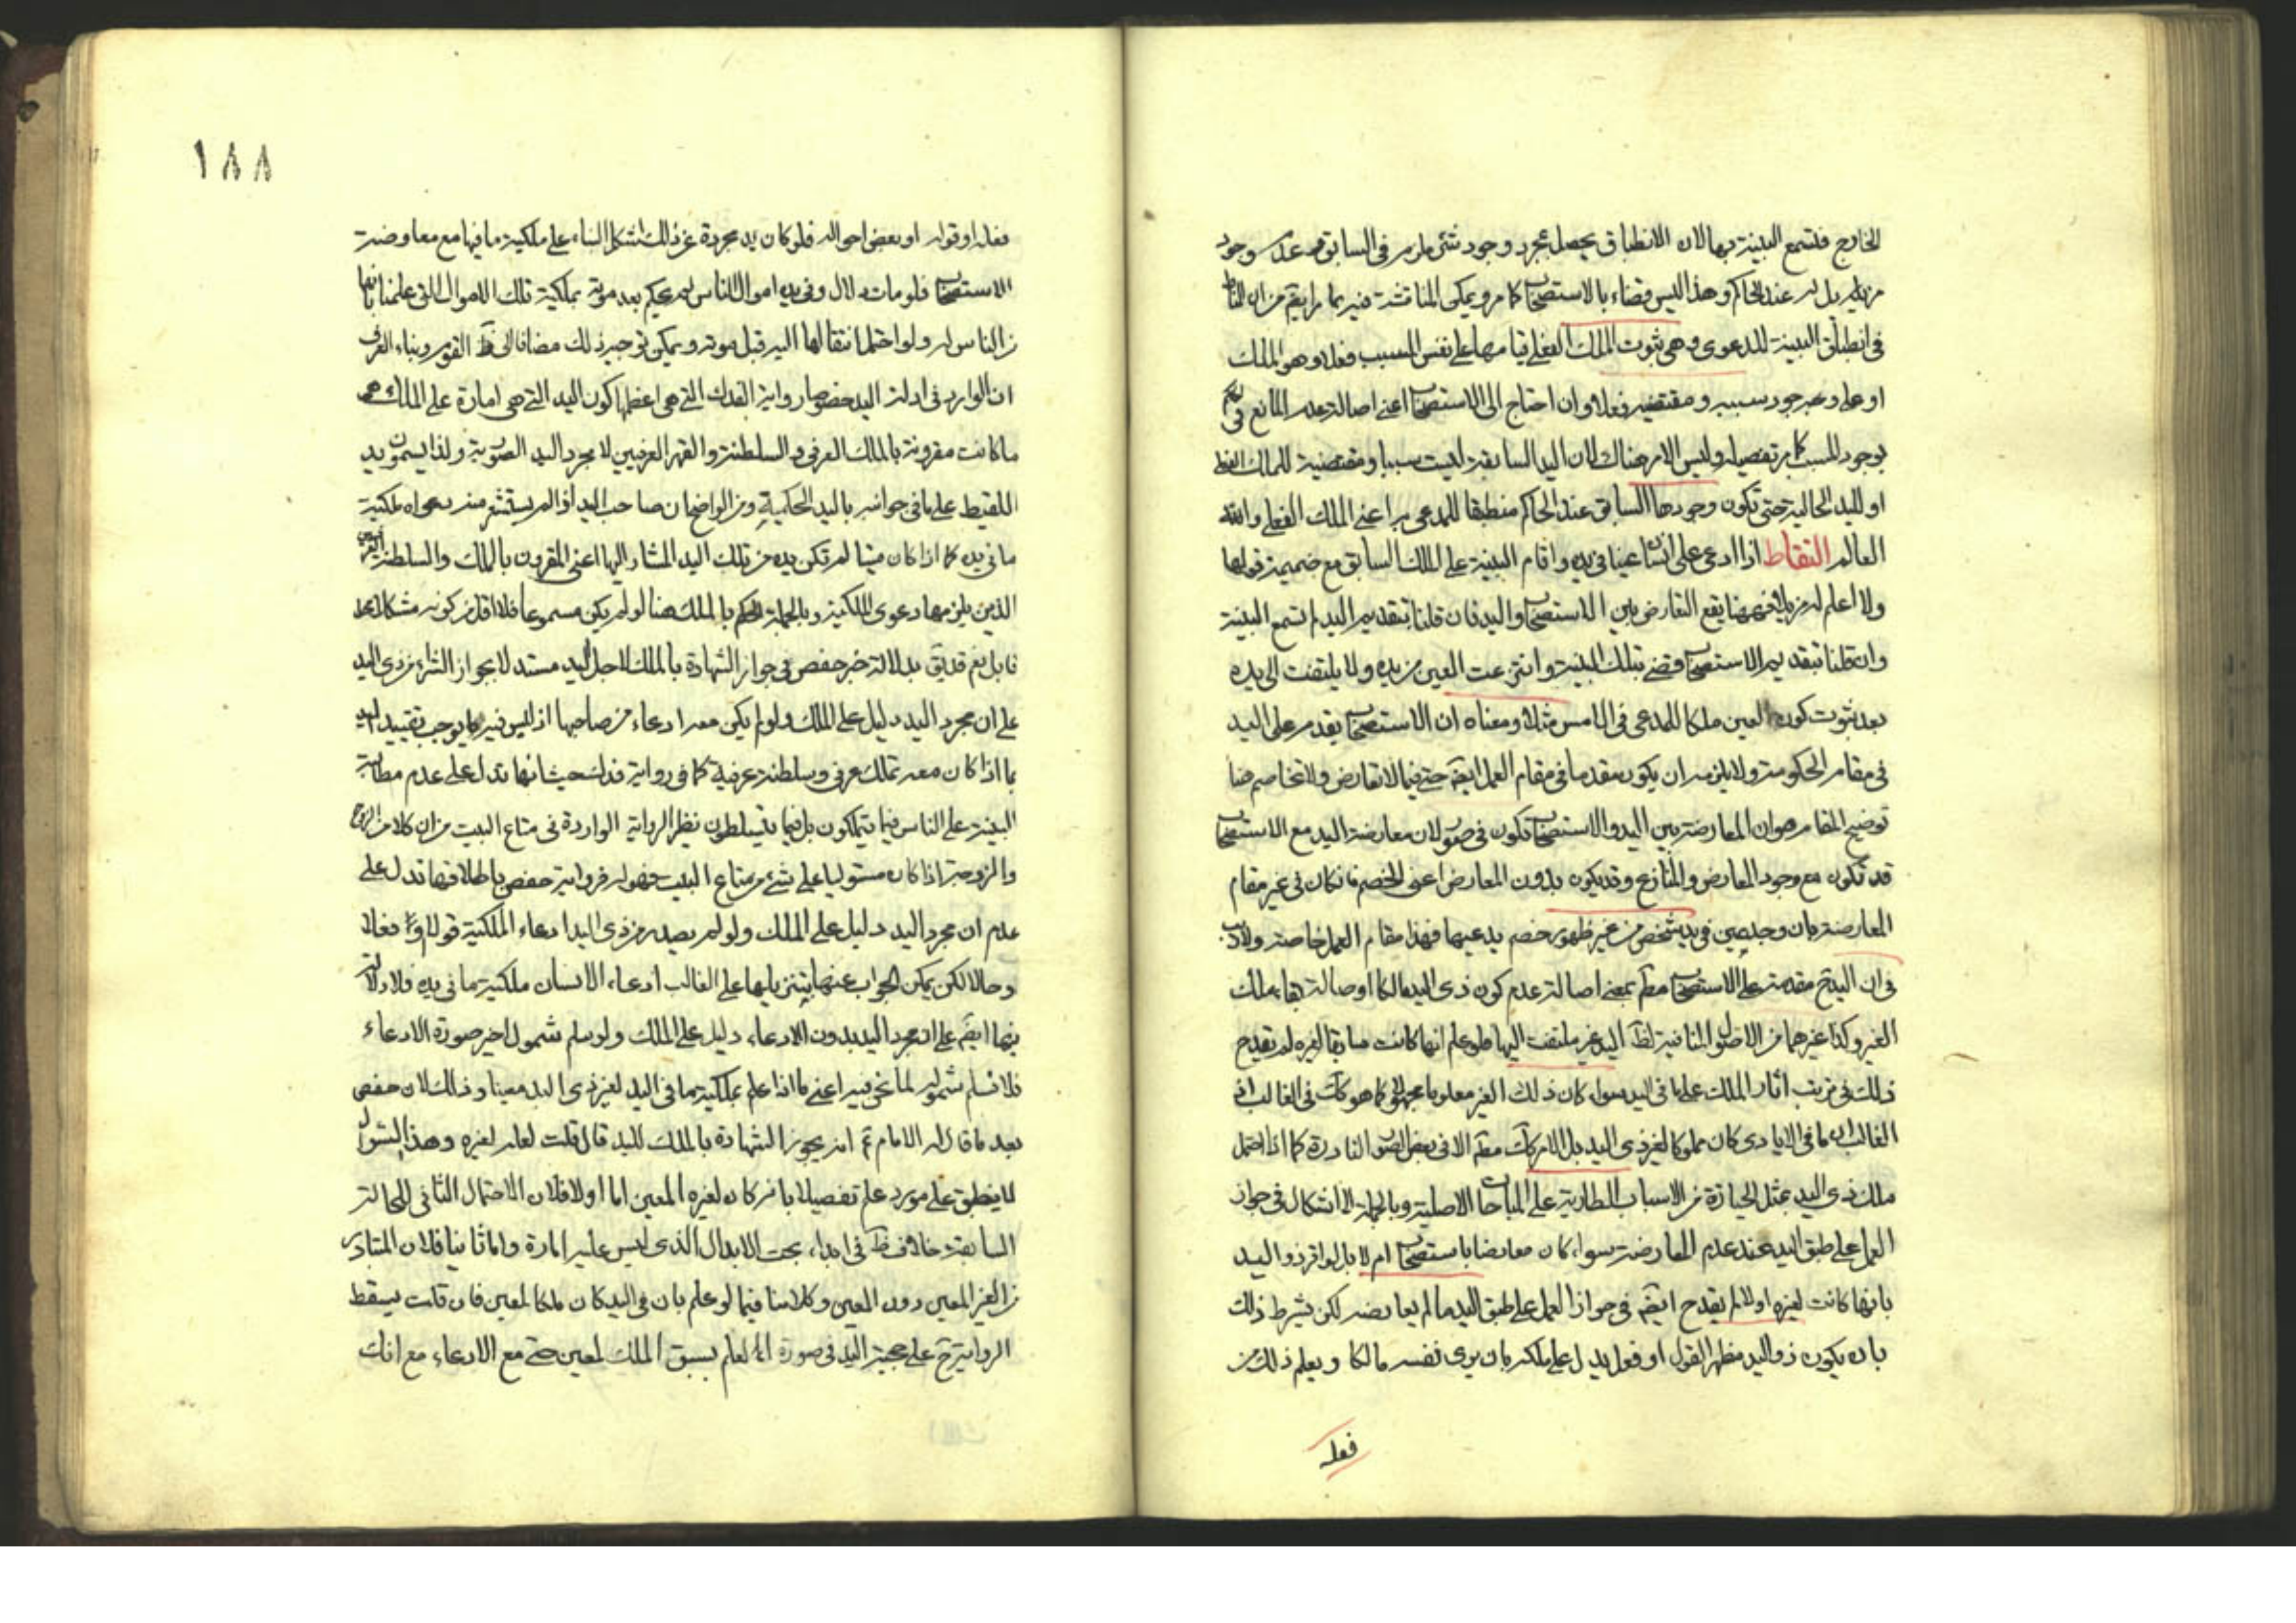 الخارج فتسمع البينة بها لان الانطباق يحصل بمجرد وجود شئ ملزم في السابق مع عدم وجود
مزيل له عند الحاكم وهذا ليس قضاء بالاستصحاب كما مر ويمكن المناقشة فيه بما مر ايضا من ان المناط
في انطباق البينة للدعوى وهي ثبوت الملك الفعلي قيامها على نفس المسبب فعلا وهو الملك
او على وجود سببه ومقتضيه فعلا وان احتاج الى الاستصحاب اعني اصالة عدم المانع في
بوجود المسبب كما مر تفصيله وليس الامر هناك لان اليد السابقة ليست سببا ومقتضية للملك الفعلي
او لليد الحالية حتى تكون وجودها السابق عند الحاكم منطبقا للمدعى به اعني الملك الفعلي والله
العالم التقاط اذا ادعى على انسان عينا في يده واقام البينة على الملك السابق مع ضميمة قولها
ولا اعلم له مزيلا فهنا يقع التعارض بين الاستصحاب واليد فان قلنا بتقديم اليد لم تسمع البينة
وان قلنا بتقديم الاستصحاب قضى بتلك البينة وانتزعت العين من يده ولا يلتفت الى يده
بعد ثبوت كون العين ملكا للمدعي في الامس مثلا ومعناه ان الاستصحاب يقدم على اليد
في مقام الحكومة ولا يلزم ان يكون مقدما في مقام العمل ايضا حتى فيما لا تعارض ولا تخاصم هنا
توضيح المقام هو ان المعارضة بين اليد والاستصحاب تكون في صور لان معارضة اليد مع الاستصحاب
قد تكون مع وجود المعارض والمنازع وقد يكون بدون المعارض اعني الخصم فان كان في غير مقام
المعارضة بان وجد عين في يد شخص من غير ظهور خصم يدعيها فهذا مقام العمل خاصة ولا ريب
في ان اليد ح مقدمة على الاستصحاب مط بمعنى اصالة عدم كون ذي اليد مالكا او اصالة بقاء ملك
الغير وكذا غيرهما من الاصول المنافية لظ اليد غير ملتفت اليها فلو علم انها كانت سابقا لغيره لم يقدح
ذلك في ترتيب اثار الملك على ما في اليد سواء كان ذلك الغير معلوما او مجهولا كما هو كك في الغالب اذ
الغالب ان ما في الايادي كان مملوكا لغير ذي اليد بل الامر كك مط الا في بعض الصور النادرة كما اذا احتمل
ملك ذي اليد بمثل الحيازة من الاسباب الطارية على المباحات الاصلية وبالجملة لا اشكال في جواز
العمل على طبق اليد عند عدم المعارضة سواء كان معارضا باستصحاب ام لا بل لو اقر ذو اليد
بانها كانت لغيره اولا لم يقدح ايضا في جواز العمل على طبق اليد ما لم يعارضه لكن بشرط ذلك
بان يكون ذو اليد مظهرا لقول او فعل يدل على ملكه بان يرى نفسه مالكا ويعلم ذلك من
فعله
١٨٨
فعله او قوله او بعض احواله فلو كان يد مجردة عن ذلك اشكل البناء على ملكية ما فيها مع معاوضة
الاستصحاب فلو مات دلال وفي يده اموال الناس لم يحكم بعد موته بملكية تلك الاموال التي علمنا بانها
من الناس له ولو احتمل انتقالها اليه قبل موته ويمكن توجيه ذلك مضافا الى ظ القوم وبناء العرف
ان الوارد في ادلة اليد خصوصا رواية الفدك التي هي اعظمها كون اليد التي هي امارة على الملك هي
ما كانت مقرونة بالملك العرفي والسلطنة والقهر العرفيين لا مجرد اليد الصورية ولذا يسمون يد
اللقيط على ما في جوانبه باليد الحكمية ومن الواضح ان صاحب اليد اذا لم يستشعر منه دعواه ملكية
ما في يده كما اذا كان ميتا لم تكن يده من تلك اليد المشار اليها اعني المقرون بالملك والسلطنة العرفيين
الذين يلزمها دعوى الملكية وبالجملة الحكم بالملك هنا لو لم يكن مسموعا فلا اقل من كونه مشكلا
قابل نعم قد يق بدلالة خبر حفص في جواز الشهادة بالملك لاجل اليد مستدلا بجواز الشراء من ذي اليد
على ان مجرد اليد دليل على الملك ولو لم يكن معه ادعاء من صاحبها اذ ليس فيه ما يوجب تقييد اليد
بما اذا كان معه تملك عرفي وسلطنة عرفية كما في رواية فدك حيث انها تدل على عدم مطالبة
البينة على الناس فيما يتملكون بل فيما يتسلطون نظير الرواية الواردة في متاع البيت من ان كلا من الزوج
والزوجة اذا كان مستوليا على شئ من متاع البيت فهو له فرواية حفص باطلاقها تدل على
عدم ان مجرد اليد دليل على الملك ولو لم يصدر من ذي اليد ادعاء الملكية قولا او فعلا
وحالا لكن يمكن الجواب عنها بتنزيلها على الغالب ادعاء الانسان ملكية ما في يده فلا دلالة
فيها ايضا على ان مجرد اليد بدون الادعاء دليل على الملك ولو سلم شمول اخير صورة الادعاء
فلا نسلم شموله لما نحن فيه اعني ما اذا علم بملكية ما في اليد لغير ذي اليد معينا وذلك لان حفص
بعد ما قال له الامام ع انه يجوز الشهادة بالملك لليد قال قلت لعله لغيره وهذا السؤال
لا ينطبق على مورد علم تفصيلا بانه كان لغيره المعين اما اولا فلان الاحتمال الثاني للحالة
السابقة خلاف ظ في ابداء بحت الابدال الذي ليس عليه امارة واما ثانيا فلان المتبادر
من الغير المعين دون المعين وكلامنا فيما لو علم بان في اليد كان ملكا لمعين فان قلت يسقط
الرواية ح على حجية اليد في صورة العلم بسبق الملك لمعين حتى مع الادعاء مع انك